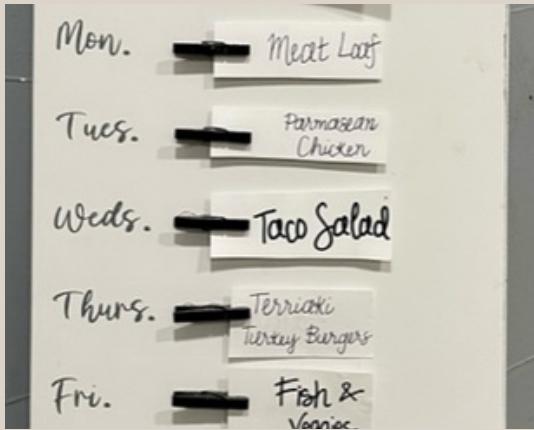 Mon.
Meat Loaf
Tues.
Parmasean
Chicken
Weds.
Taco Salad
Thurs.
Terriaki
Turkey Burgers
Fri.
Fish &
Veggies